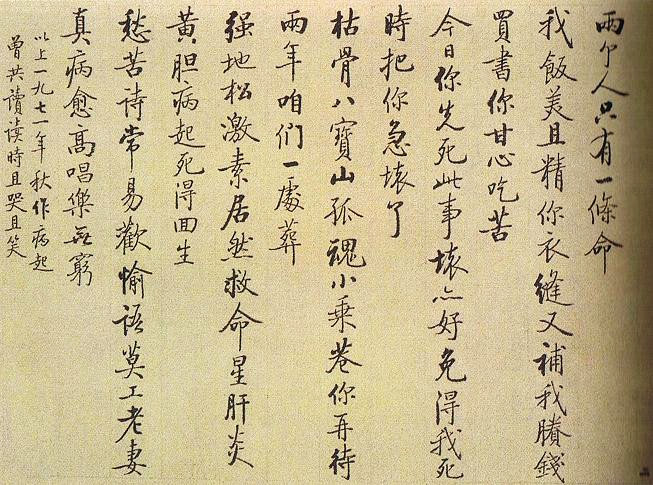 兩个人只有一條命
我飯美且精你衣縫又補我賸錢
買書你甘心吃苦
今日你先死此事壞亦好免得我死
時把你急壞了
枯骨八寶山孤魂小乘巷你再待
兩年咱们一處葬
强地松激素居然救命星肝炎
黄胆病起死得回生
愁苦诗常易歡愉語莫工老妻
真病愈高唱樂無窮
以上一九七一年秋作病起
曾共讀讀時且哭且笑